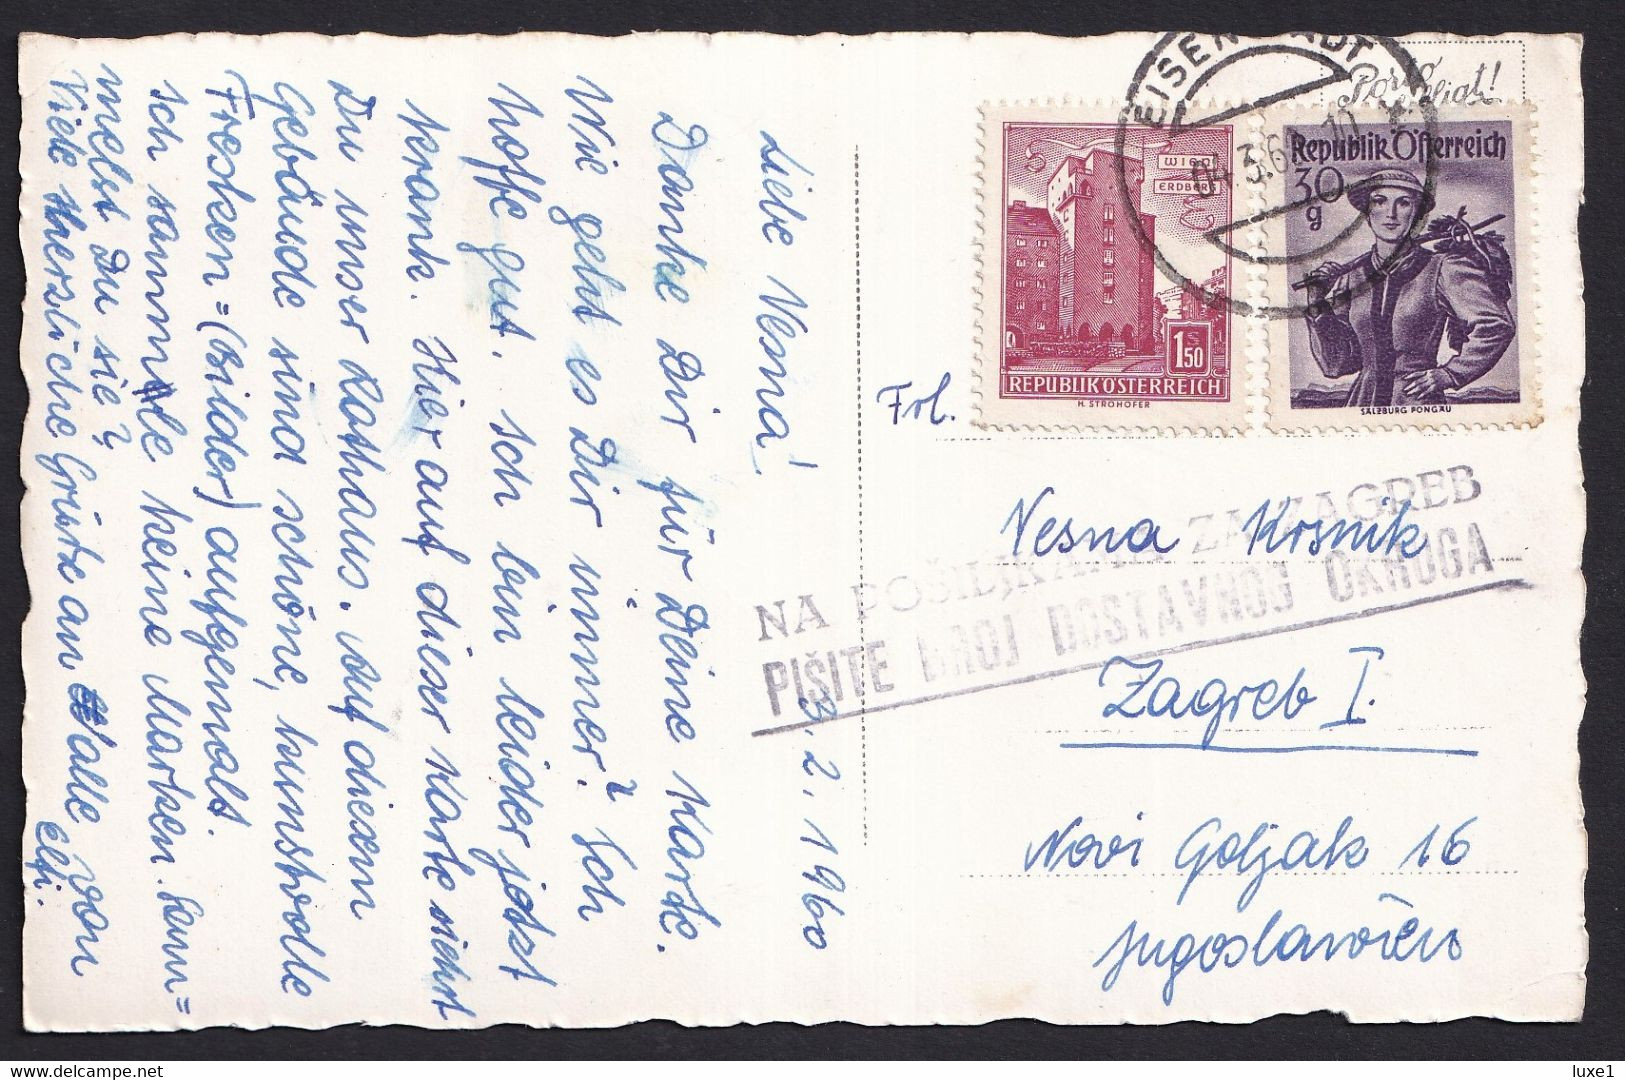 3.2.1960
Liebe Vesna!
Danke Dir für Deine Karte.
Wie geht es Dir immer? Ich
hoffe gut. Ich bin leider jetzt
krank. Hier auf dieser Karte siehst
Du unser Rathaus. Auf diesem
Gebäude sind schöne, kunstvolle
Fresken=(Bilder) aufgemalt.
Ich sammle keine Marken. Sam=
melst Du sie?
Viele herzliche Grüße an alle von
Elfi.
EISENSTADT
Porto
REPUBLIK ÖSTERREICH
WIEN
ERDBERG
1 50
H. STROHOFER
Republik Österreich
30
g
SALZBURG PONGAU
Frl.
Vesna Krsnik
NA POŠILJKAMA ZA ZAGREB
PIŠITE BROJ DOSTAVNOG OKRUGA
Zagreb I.
Novi Goljak 16
Jugoslavien
luxe1
delcampe.net